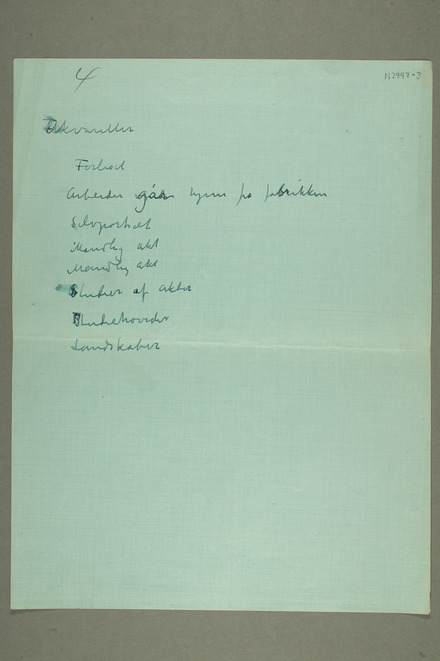 4
N2997-3
Akvareller
Forbud
Arbeider går hjem fra fabrikken
Selvportræt
Mandlig akt
Mandlig akt
Studier af akter
Studiehoveder
Landskaber